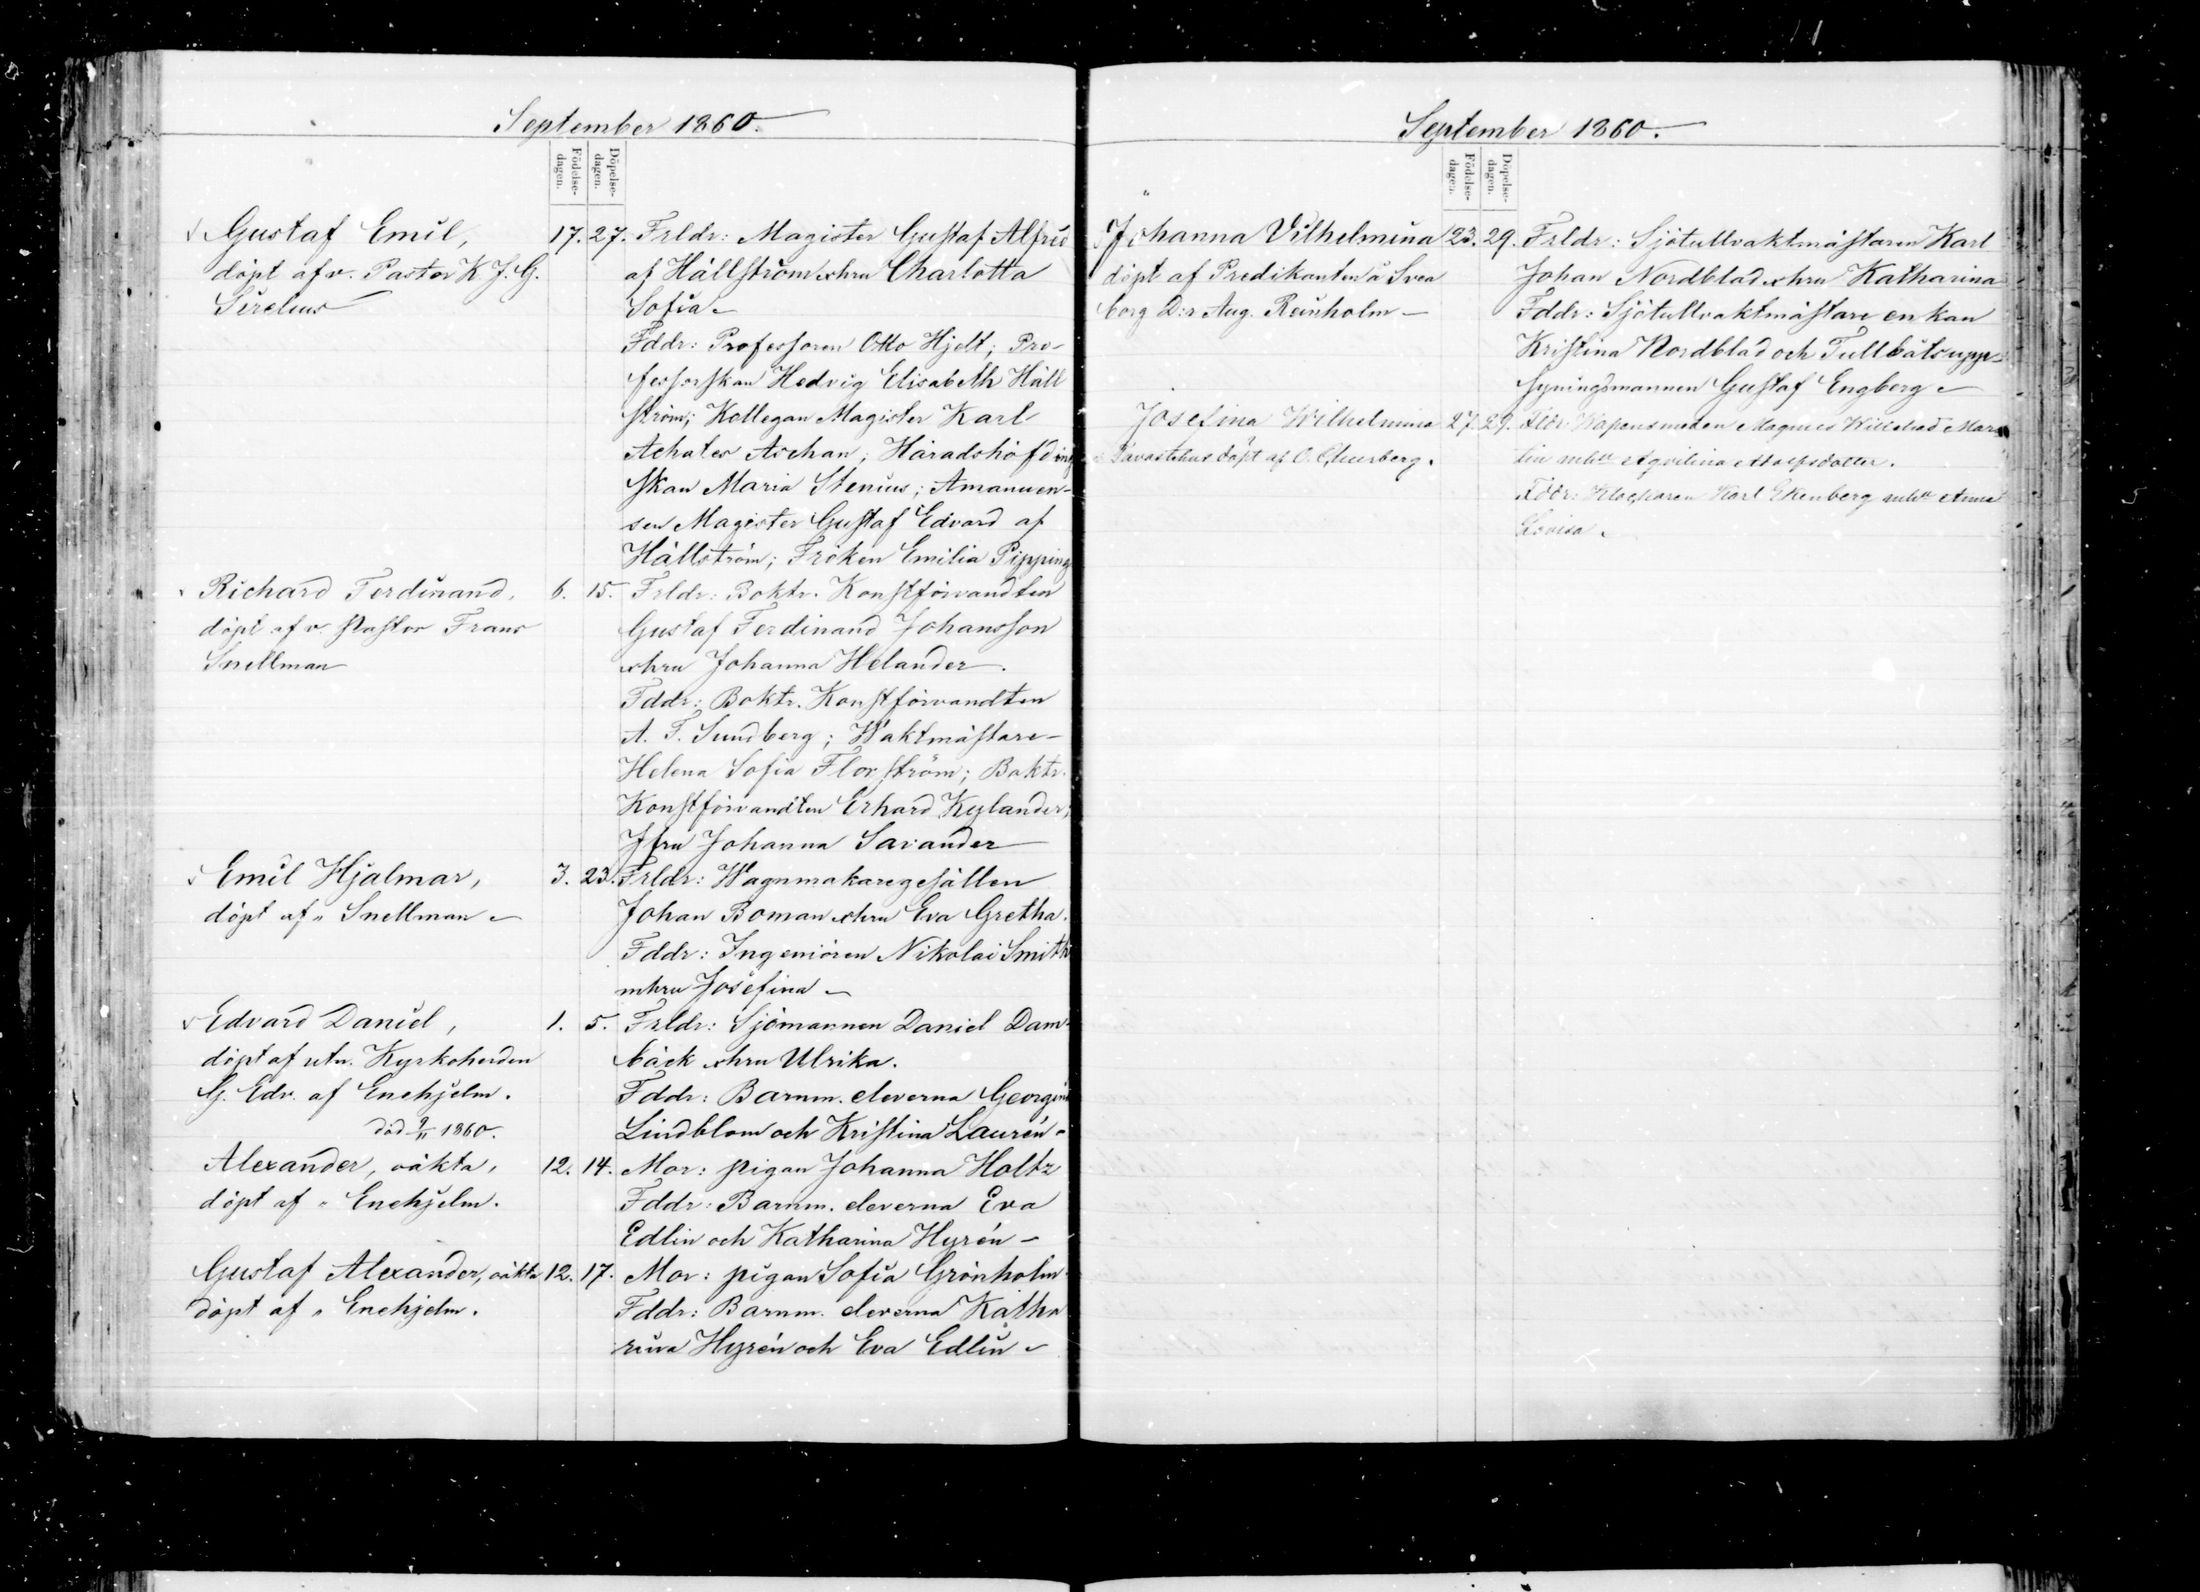 September 1860.
Födelse-dagen.
Döpelse-dagen.
Gustaf Emil,
döpt af v. Pastor K. J. G.
Sirelius
17. 27. Frldr: Magister Gustaf Alfrid
af Hällström o hru Charlotta
Sofia
Fddr: Professoren Otto Hjelt; Pro-
fessorskan Hedvig Elisabeth Häll
ström; Kollegan Magister Karl
Achates Aschan; Häradshöfding
skan Maria Stenius; Amanuen-
sen Magister Gustaf Edvard af
Hällström; Fröken Emilia Pipping
Richard Ferdinand,
döpt af v. Pastor Frans
Snellman
6. 15. Frldr: Boktr. Konstförvandten
Gustaf Ferdinand Johansson
o hru Johanna Helander.
Fddr: Boktr. Konstförvandten
A. F. Sundberg; Waktmästare-
Helena Sofia Florström; Boktr.
Konstförvandten Erhard Kylander;
Jfru Johanna Savander
Emil Hjalmar,
döpt af " Snellman
3. 23. Frldr: Wagnmakaregesällen
Johan Boman o hru Eva Gretha.
Fddr: Ingeniören Nikolai Smith
m hru Josefina
Edvard Daniel,
döpt af utn. Kyrkoherden
G. Edv. af Enehjelm.
död 9/11 1860.
1. 5. Frldr: Sjömannen Daniel Dam-
bäck o hru Ulrika.
Fddr: Barnm. eleverna Georgina
Lindblom och Kristina Laurén
Alexander, oäkta,
döpt af " Enehjelm.
12. 14. Mor: pigan Johanna Holtz
Fddr: Barnm. eleverna Eva
Edlin och Katharina Hyrén
Gustaf Alexander, oäkta
döpt af " Enehjelm.
12. 17. Mor: pigan Sofia Grönholm
Fddr: Barnm. eleverna Katha
rina Hyrén och Eva Edlin
September 1860.
Födelse-dagen.
Döpelse-dagen.
Johanna Vilhelmina
döpt af Predikanten å Svea
borg D:r Aug. Reinholm
23. 29. Frldr: Sjötullvaktmästaren Karl
Johan Nordblad o hru Katharina
Fddr: Sjötullvaktmästare enkan
Kristina Nordblad och Tullbåtsupp-
syningsmannen Gustaf Engberg
Josefina Wilhelmina
Tavastehus döpt af
27. 29. Fldr: Kapensmeden Magnus Mar
lin mhu Aqvilina Adolfsdotter.
Fddr: Klockaren Karl Ekenberg mhu Anna
Lovisa.